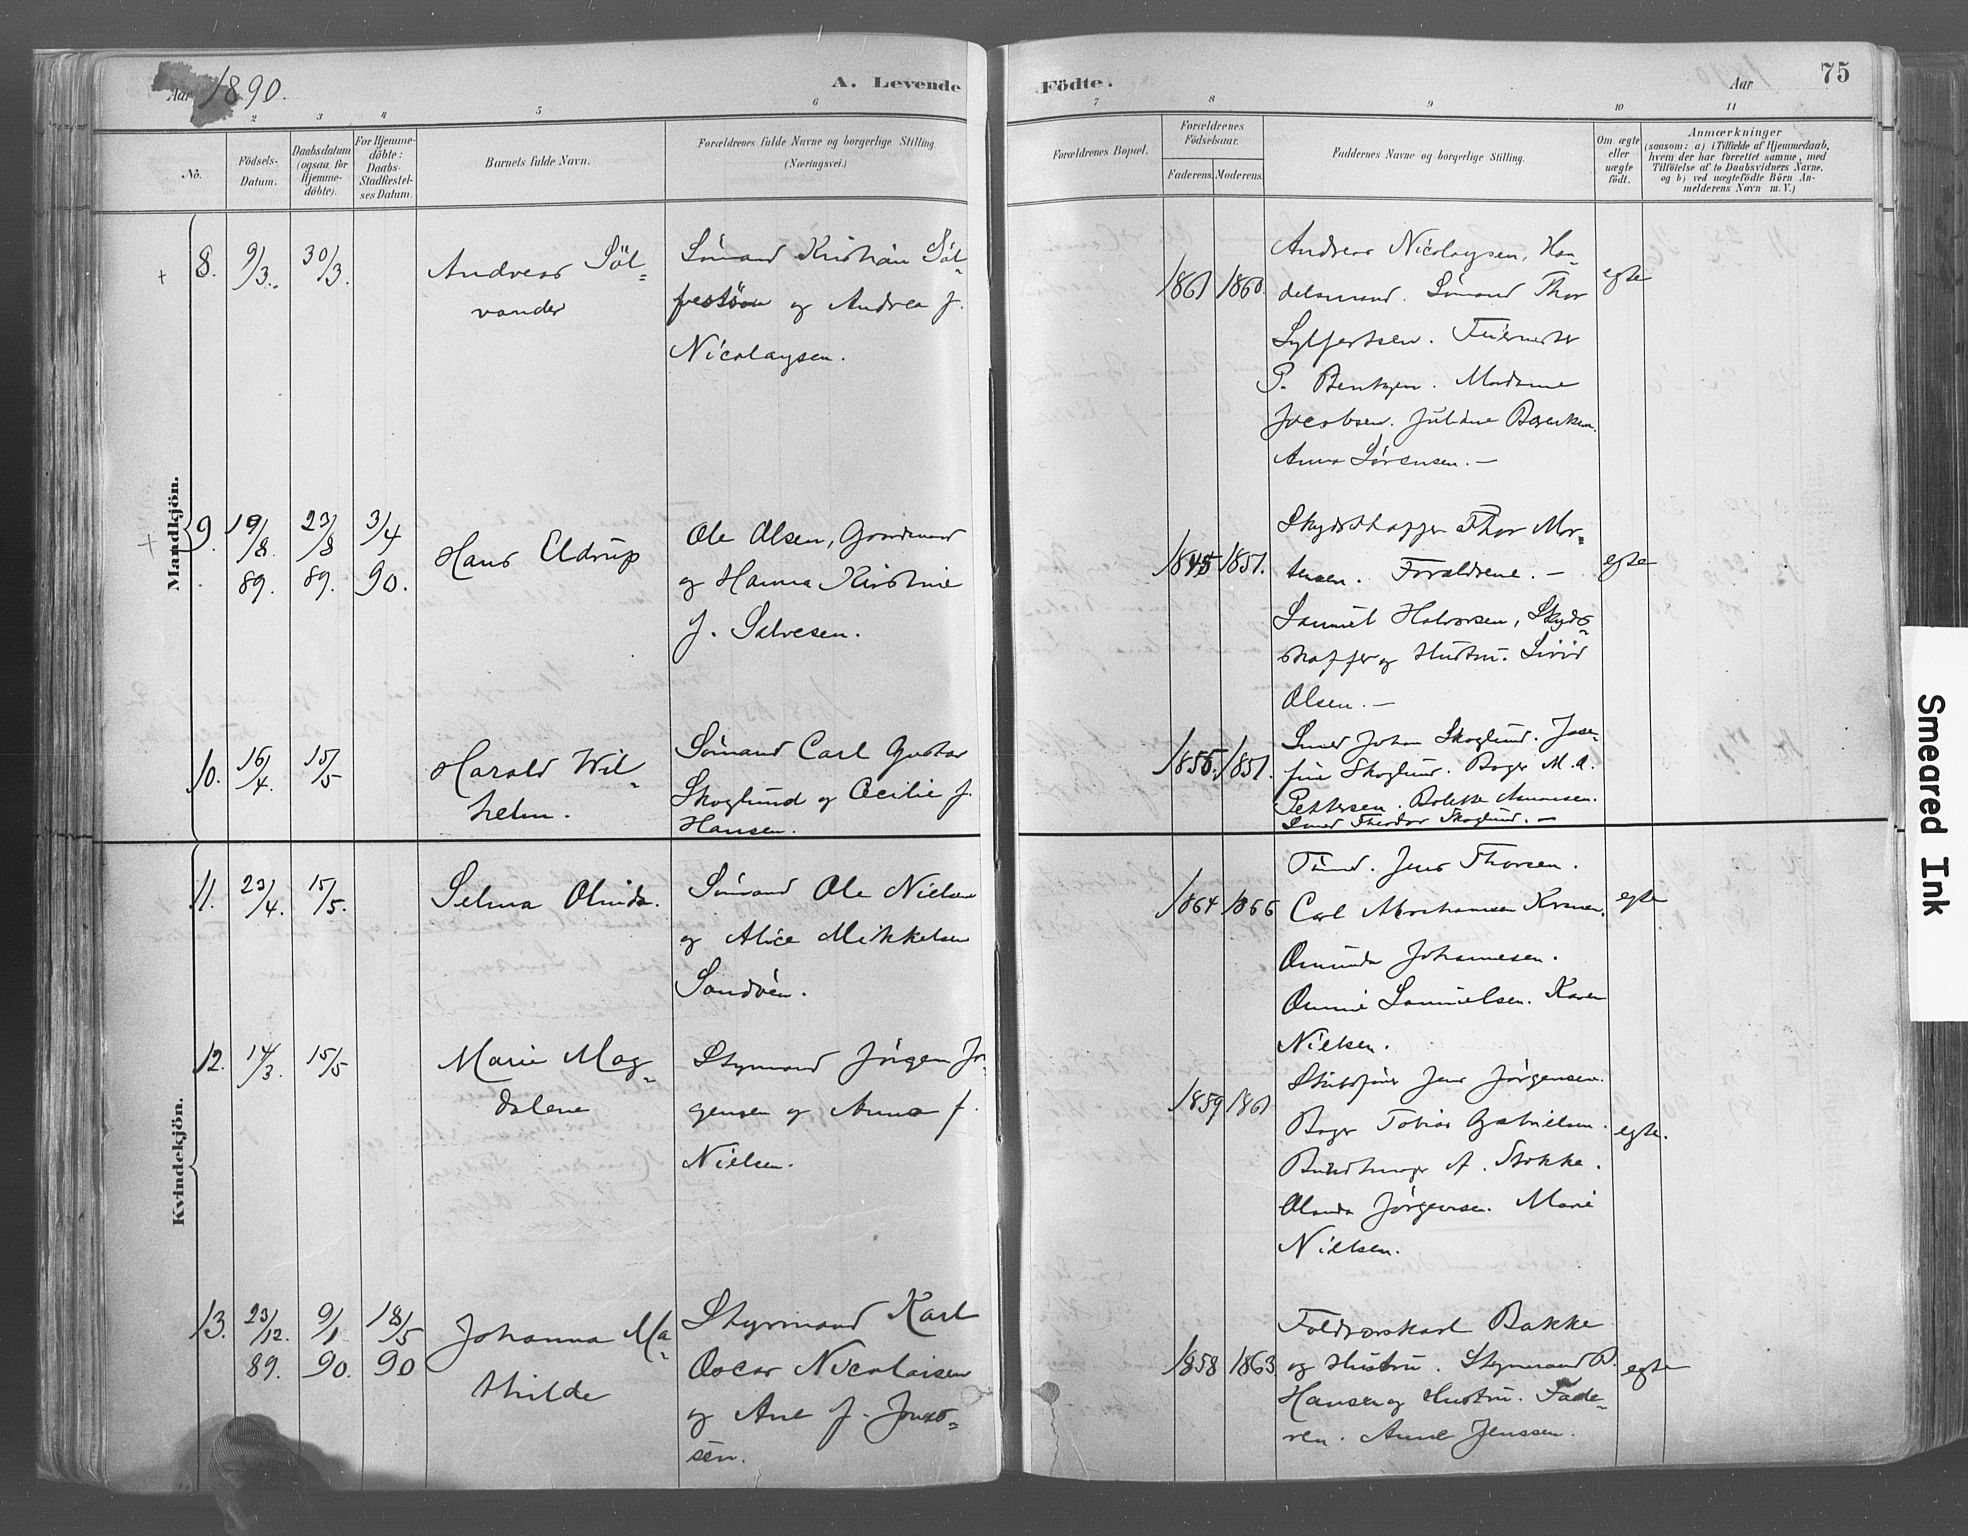 Aar 1890.
A. Levende
Födte.
Aar
75
2 3 4 5 6 7 8 9 10 11
No.
Födsels-
Datum.
Daabsdatum
(ogsaa for
Hjemme-
döbte).
For Hjemme-
döbte:
Daabs-
Stadfestel-
ses Datum.
Barnets fulde Navn.
Forældrenes fulde Navne og borgerlige Stilling
(Næringsvei.)
Forældrenes Bopæl.
Forældrenes
Födselsaar.
Faderens. Moderens.
Faddernes Navne og borgerlige Stilling.
Om ægte
eller
uægte
födt.
Anmærkninger
(saasom: a) i Tilfælde af Hjemmedaab,
hvem der har forrettet samme, med
Tilföielse af to Daabsvidners Navne,
og b) ved uægtefödte Börn An-
melderens Navn m. V.)
Mandkjön.
8. 9/3. 30/3.
Andreas Söl-
vander
Sömand Kristian Söl-
festsön og Andrea f.
Nicolaysen.
1861 1860.
Andreas Nicolaysen, Han-
delsmand. Sömand Thor
Sylfestsen.
P. Bentzen. Madame
Jacobsen.
Anna Sörensen. —
egte
9. 19/8. 89. 23/8 89. 3/4 90.
Hans Eldrup
Ole Olsen, Gaardmand
og Hanna Kirstine
f. Salvesen.
1845 1851.
Skydsskaffer Thor Mor-
tensen. Forældrene. —
Samuel Halvorsen, Skyds-
skaffer og Hustru. Sivid
Olsen. —
egte
10. 16/4. 15/5
Harald Wil-
helm.
Sömand Carl Gustav
Skoglund og Cecilie f.
Hansen.
1855. 1851.
Smed Johan Skoglund. Jose-
fine Skoglund. Bager M. A.
Pettersen. Bolette Amonsen.
Smed Theodor Skoglund. —
Kvindekjön.
11. 23/4. 15/5.
Selma Olinda.
Sömand Ole Nielsen
og Alice Mikkelsen
Sandöen.
1864 1866
Tönd. Jens Thorsen.
Carl Abrahamsen
Omunda Johannesen.
Samuelsen. Karen
Nielsen.
egte
12. 14/3. 15/5
Marie Mag-
dalene
Styrmand Jörgen Jör-
gensen og Anna f.
Nielsen.
1859 1861
Skibsförer Jens Jörgensen.
Bager Tobias Gabrielsen.
A. Stokke.
Olanda Jörgensen. Marie
Nielsen.
egte.
13. 23/12. 89. 9/1. 90. 18/5 90
Johanna Ma-
thilde
Styrmand Karl
Oscar Nicolaisen
og Ane f. Jens-
sen.
1858 1863
Toldrorskarl Bakke
og Hustru. Styrmand P.
Hansen og Hustru. Fade-
ren. Anne Jenssen.
egte
Smeared Ink